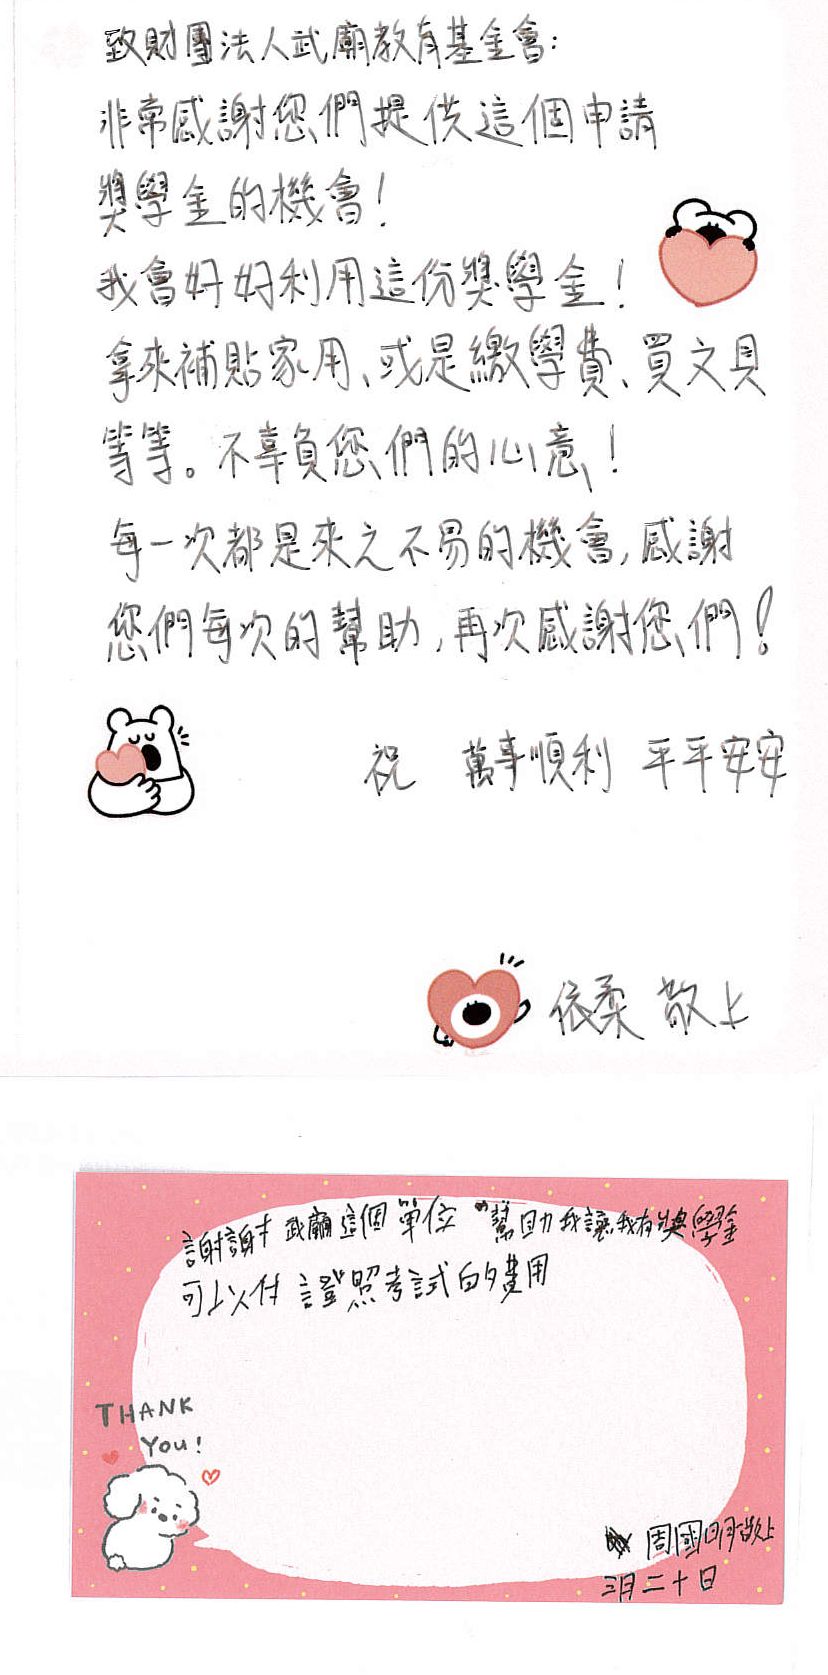 致財團法人武廟教育基金會：
非常感謝您們提供這個申請
獎學金的機會！
我會好好利用這份獎學金！
拿來補貼家用、或是繳學費、買文具
等等。不辜負您們的心意！
每一次都是來之不易的機會，感謝
您們每次的幫助，再次感謝您們！
祝 萬事順利 平平安安
依柔 敬上
謝謝 武廟這個單位 幫助我讓我有獎學金
可以付 證照考試的費用
THANK
YOU!
周國明敬上
三月二十日